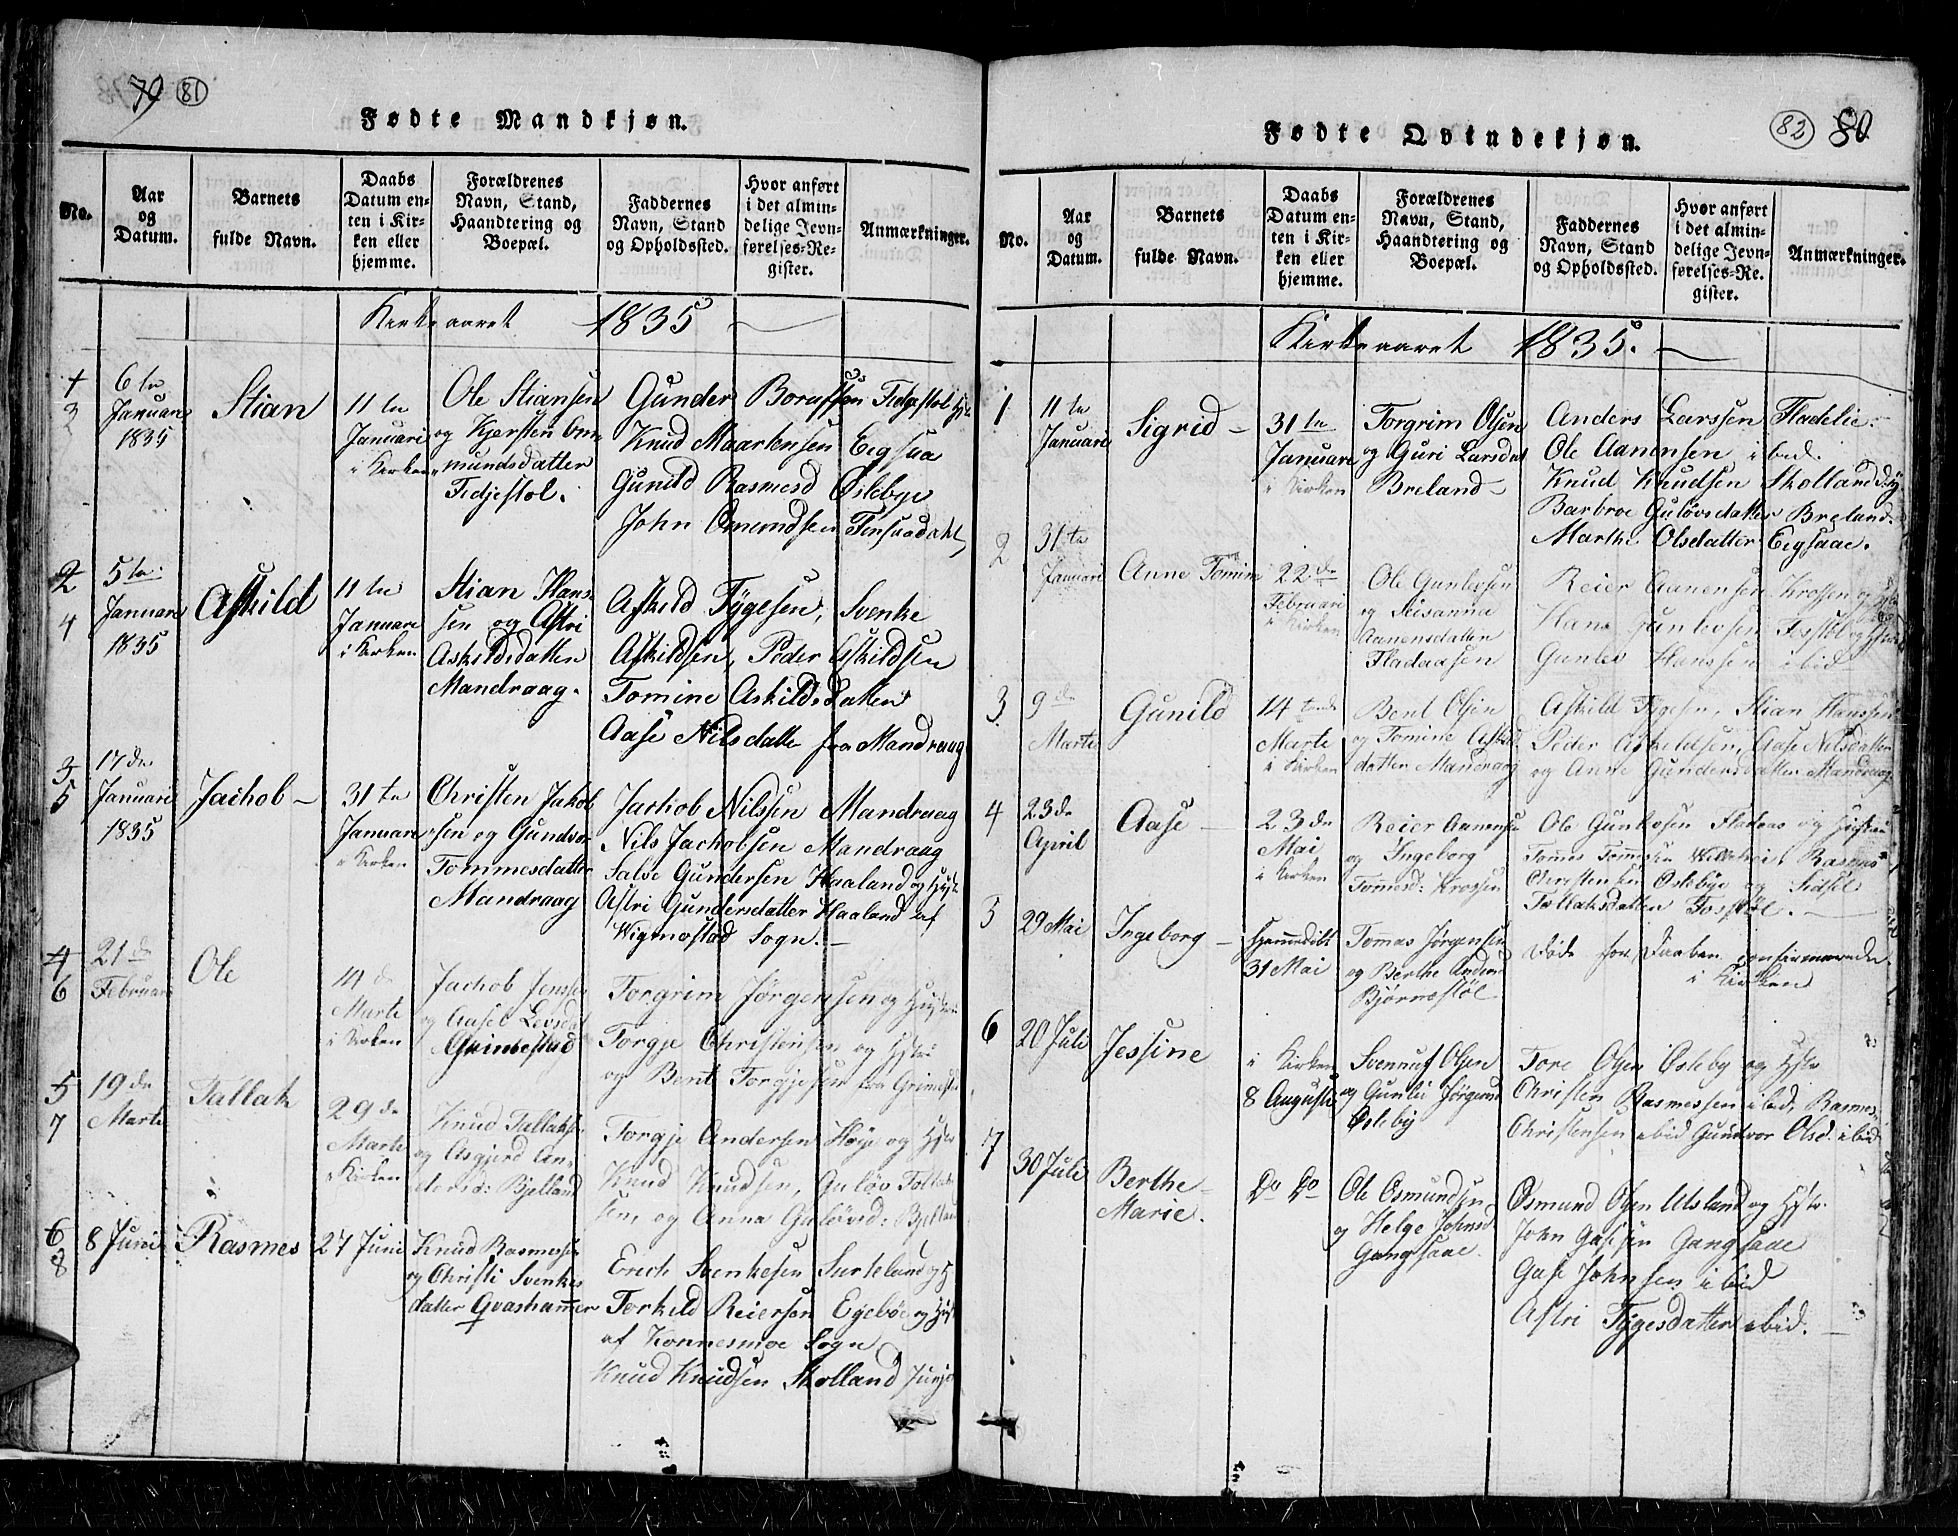 79 81
Fødte Mandkjøn.
No.
Aar og Datum.
Barnets fulde Navn.
Daabs Datum enten i Kirken eller hjemme.
Forældrenes Navn, Stand, Haandtering og Boepæl.
Faddernes Navn, Stand og Opholdssted.
Hvor anført i det almindelige Jevnførelses-Register.
Anmærkninger.
Kirkeaaret 1835
1 3
6te Januari 1835
Stian
11te Januari i Kirken
Ole Stiansen
og Kjersten
mundsdatter
Fidjestøl.
Gunder Fidjestøl
Knud Maartensen Eegsaa
Gunild Rasmesd Øslebye
John Omundsen
2 4
5te Januari 1835
Askild
11te Januari i Kirken
Stian Hans-
sen og Astri
Askildsdatter
Mandraag.
Askild Tygesen, Svenke
Askildsen, Peder Askildsen
Tomine Askildsdatter
Aase Nilsdatter fra Mandraag
3 5
17de Januari 1835
Jachob
31te Januari i Kirken
Christen Jakob-
sen og Gundvor
Tommesdatter
Mandraag
Jachob Nilssen Mandraag
Nils Jachobsen Mandraag
Salve Gundersen Haaland og Hust
Astri Gundersdatter Haaland af
Wigmostad Sogn.
4 6
21de Februari
Ole
14de Marti i Kirken
Jachob Jenssen
og Aasel Levsdat
Grimestad
Torgrim Jørgensen og Hustru
Torgje Christensen og Hstru
og Bent Torgjesen fra Grimest
5 7
19de Marti
Tallak
29de Marti i Kirken
Knud Tallaks
og Asgjerd An-
dersd: Bjelland
Torgje Andersen Høye og Hstr
Knud Knudsen, Guløv Tallak-
sen, og Anna Guløvsd: Bjelland
6 8
8 Juni
Rasmes
27 Juni
Knud Rasmessen
og Christi Svenkes
datter Qvashammer
Erich Svenkesen Surkland og H
Torkild Reiersen Egebøe og Hust
af Konnesmoe Sogn
Knud Knudsen Skolland
82 80
Fødte Qvindekjøn.
No.
Aar og Datum.
Barnets fulde Navn.
Daabs Datum enten i Kirken eller hjemme.
Forældrenes Navn, Stand, Haandtering og Boepæl.
Faddernes Navn, Stand og Opholdssted.
Hvor anført i det almindelige Jevnførelses-Register.
Anmærkninger.
Kirkeaaret 1835.
1
11te Januari
Sigrid
31te Januari i Kirken
Torgrim Olsen
og Guri Larsdat
Breland
Anders Larssen Fladelie.
Ole Aanensen ibid.
Knud Knudsen Skolland
Barbroe Guløvsdatter Breland.
Marthe Olsdatter Eegsaae.
2
31te Januari
Anne Tomine
22de Februari i Kirken
Ole Gunlevsen
og Susanna
Aanensdatter
Fladaasen
Reier Aanensen Krossen og Hstr
Hans Gunlevsen Fosstøl og Hstru
Gunlev Hanssen ibid
3
9de Marti
Gunild
14tende Marti i Kirken
Bent Olsen
og Tomine Askild
datter Mandraag
Askild Tygesen, Stian Hanssen
Peder Askildsen, Aase Nilsdatter
og Anne Gundersdatter Mandraag
4
23de April
Aase
23de Mai i Kirken
Reier Aanensen
og Ingeborg
Tomesd: Krossen
Ole Gunlevsen Fladaas og Hustru
Tommes Tommesen Rasmus
Christensen Øslebye og Sidsel
Tallaksdatter Fosstøl.
5
29 Mai
Ingeborg
Hjemmedøbt 31 Mai
Tomas Jørgensen
og Berthe Anders
Bjørnestøl
Døde før Daaben confirmerede
i Kirken
6
20 Juli
Jessine
i Kirken 8 Augusti
Svennuf Olsen
og Gunlu Jørgensd
Øsleby
Tore Olsen Øsleby og Hstr
Christen Rasmessen ibid, Rasmes
Christensen ibid Gundvor Olsd. ibid
7
30 Juli
Berthe Marie.
Do Do
Ole Osmundsen
og Helge Johnsd
Gangsaae.
Osmund Olsen Ulsland og Hstr.
John Gasesen Gangsaae
Gase Johnsen ibid
Astri Tygesdatter ibid.